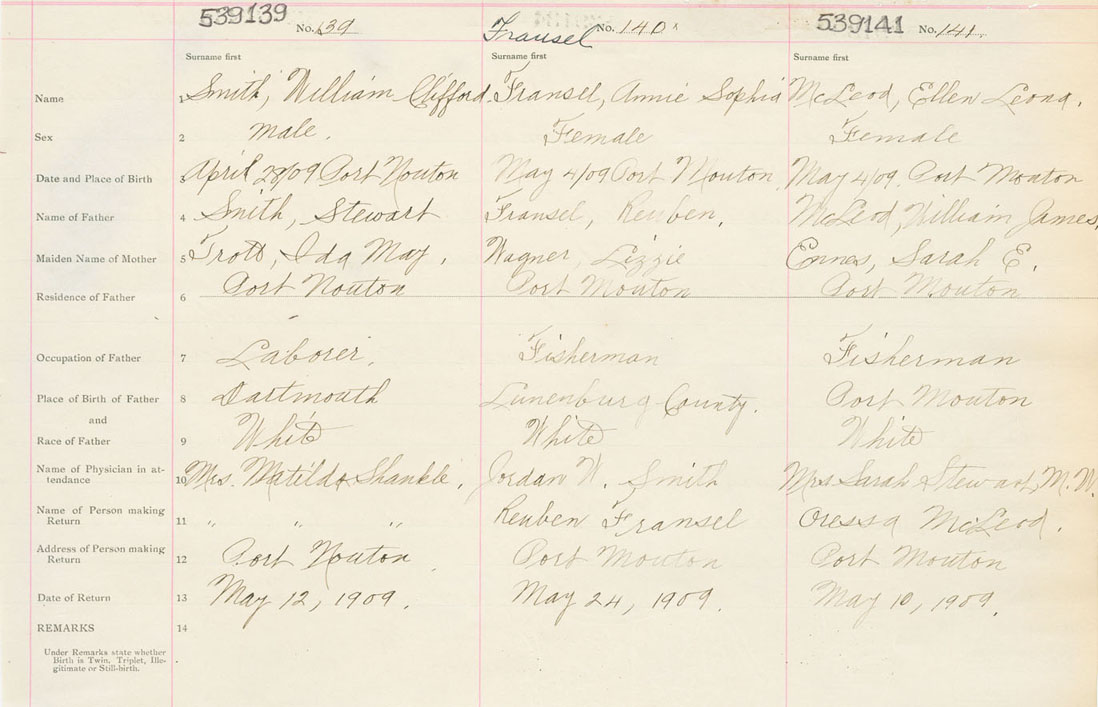 539139 No. 139 Fransel No. 140 539141 No. 141
Surname first Surname first Surname first
Name 1 Smith, William Clifford. Fransel, Annie Sophia McLeod, Ellen Leona.
Sex 2 Male. Female Female
Date and Place of Birth 3 April 28/09 Port Mouton May 4/09 Port Mouton. May 4/09. Port Mouton
Name of Father 4 Smith, Stewart Fransel, Reuben. McLeod, William James.
Maiden Name of Mother 5 Trott, Ida May. Wagner, Lizzie Ennes, Sarah E.
Residence of Father 6 Port Mouton Port Mouton Port Mouton
Occupation of Father 7 Laborer. Fisherman Fisherman
Place of Birth of Father 8 Dartmouth Lunenburg County. Port Mouton
and
Race of Father 9 White White White
Name of Physician in at-
tendance 10 Mrs. Matilda Shankle. Jordan W. Smith Mrs Sarah Stewart, M.W.
Name of Person making
Return 11 " " " Reuben Fransel Oressa McLeod.
Address of Person making
Return 12 Port Mouton. Port Mouton Port Mouton
Date of Return 13 May 12, 1909. May 24, 1909. May 10, 1909.
REMARKS 14
Under Remarks state whether
Birth is Twin, Triplet, Ille-
gitimate or Still-birth.